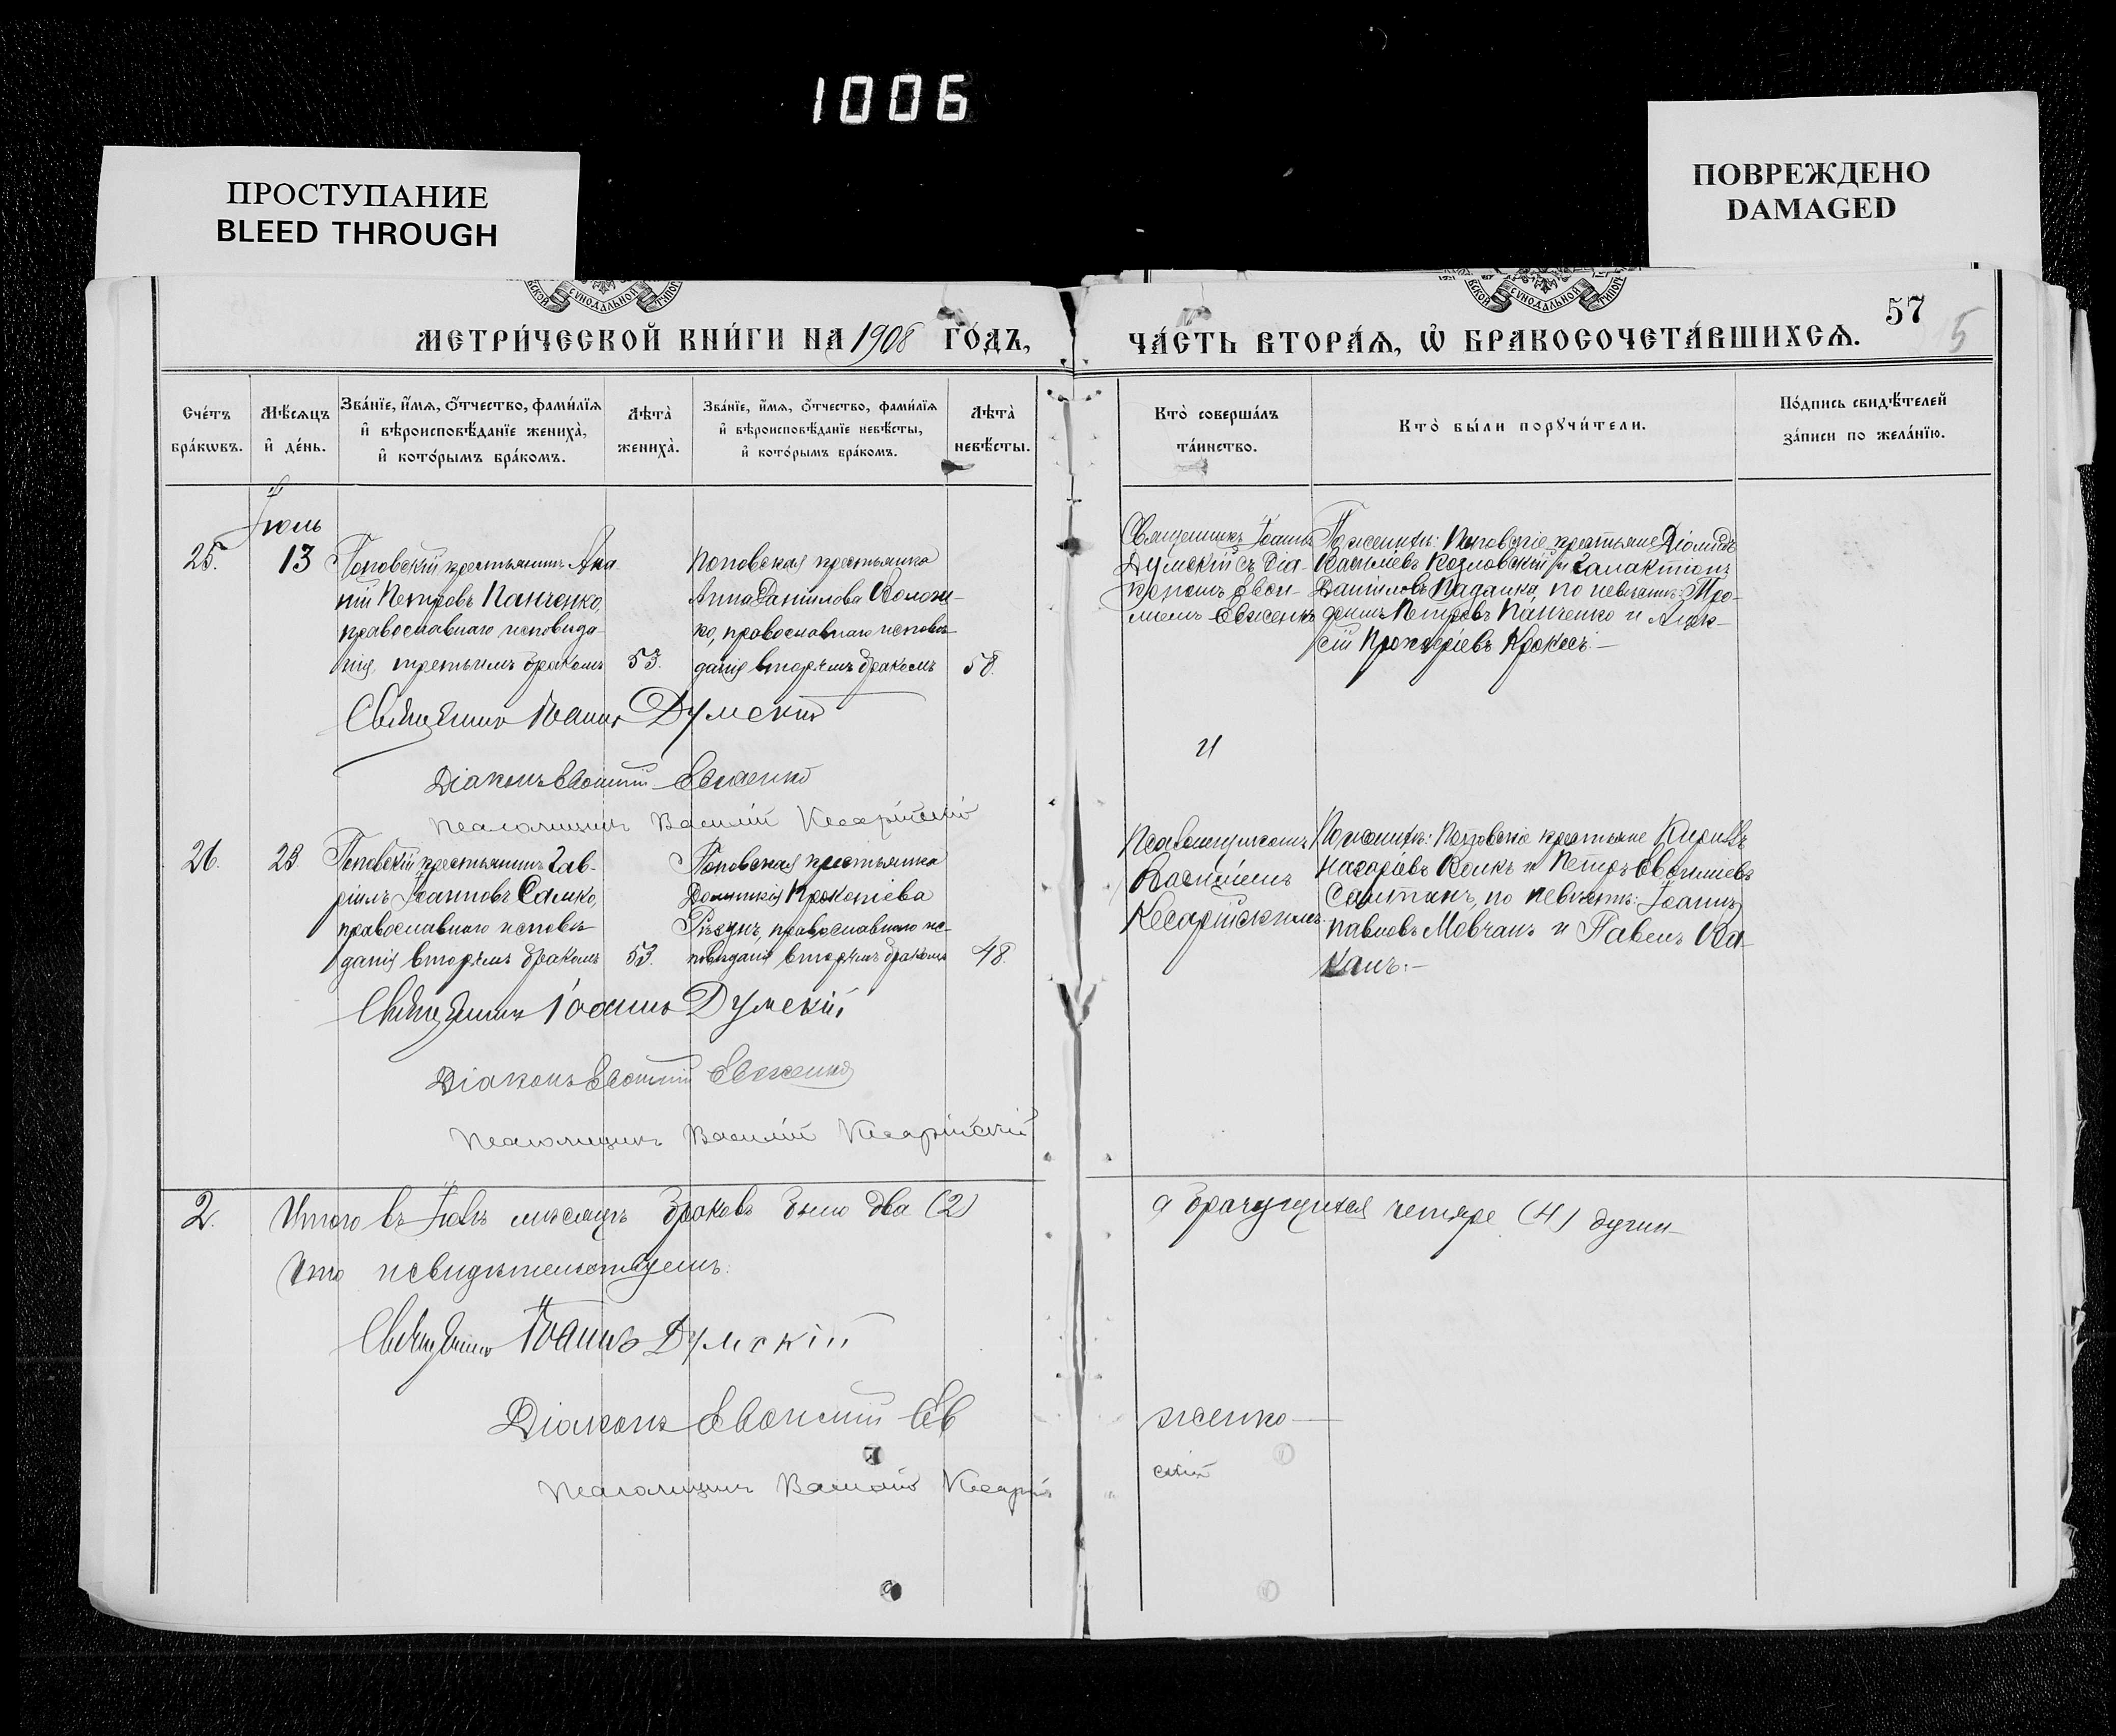 1006
ПРОСТУПАНИЕ
BLEED THROUGH
ПОВРЕЖДЕНО
DAMAGED
СУНОДАЛЬНОЙ
СУНОДАЛЬНОЙ
МЕТРИ́ЧЕСКОЙ КНИ́ГИ НА 1908 ГО́ДЪ,
ЧА́СТЬ ВТОРА́Ѧ, Ѽ БРАКОСОЧЕТА́ВШИХСѦ.
57
5
Счéтъ бра́кωвъ.
Мѣ́сѧцъ и҆ де́нь.
Зва́нїе, и҆́мѧ, ѻ҆́тчество, фами́лїѧ и҆ вѣроисповѣ́данїе жениха̀, и҆ кото́рымъ бра́комъ.
Лѣта̀ жениха̀.
Зва́нїе, и҆́мѧ, ѻ҆́тчество, фами́лїѧ и҆ вѣроисповѣ́данїе невѣ́сты, и҆ кото́рымъ бра́комъ.
Лѣта̀ невѣ́сты.
Кто̀ соверша́лъ та́инство.
Кто̀ бы́ли порꙋчи́тели.
По́дпись свидѣ́телей за́писи по жела́нїю.
Іюль
25.
13
Поповскій крестьянинъ Ана-
ній Петровъ Панченко,
православнаго исповѣда-
нія, третьимъ бракомъ
53.
Поповская крестьянка
Анна Данилова
православнаго исповѣ-
данія вторымъ бракомъ
58.
Священникъ Іоаннъ
Думскій съ Діа-
кономъ Евѳи-
міемъ Евженко
По женихѣ: Поповскіе крестьяне Діомидъ
Василіевъ Козловскій и Галактіонъ
Даніиловъ по невѣстѣ: Тро-
фимъ Петровъ Панченко и Алек-
сій
Священникъ Іоаннъ Думскій
Діаконъ Евѳимій Евженко
Псаломщикъ Василій Кесарійскій
и
26.
23
Поповскій крестьянинъ Гав-
ріилъ Іоанновъ Самко,
православнаго исповѣ-
данія вторымъ бракомъ
53.
Поповская крестьянка
Домникія Прокопіева
православнаго ис-
повѣданія вторымъ бракомъ
48.
Псаломщикомъ
Василіемъ
Кесарійскимъ.
По женихѣ: Поповскіе крестьяне Кириллъ
Назаріевъ и Петръ Евѳиміевъ
по невѣстѣ: Іоаннъ
Павловъ Мовчанъ и Павелъ
Священникъ Іоаннъ Думскій
Діаконъ Евѳимій Евженко
Псаломщикъ Василій Кесарійскій
2.
Итого въ Іюлѣ мѣсяцѣ браковъ было два (2)
а брачущихся четыре (4) души
Что и свидѣтельствуемъ:
Священникъ Іоаннъ Думскій
Діаконъ Евѳимій Ев
женко
Псаломщикъ Василій Кесарій
скій